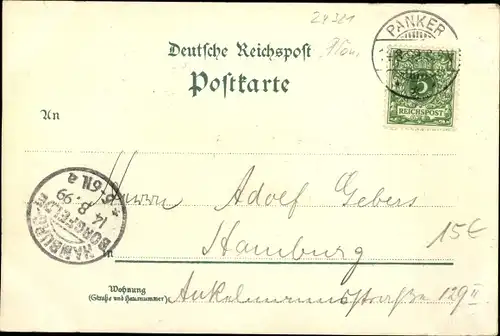 28381
Plön.
PANKER
5
REICHSPOST
Deutsche Reichspost
Postkarte
An
Herrn Adolf Gebers
in Hamburg
15€
HAMBURG-
BORGFELDE
14 8.99
Wohnung
(Straße und Hausnummer)
Ankelmannstraße 129 II